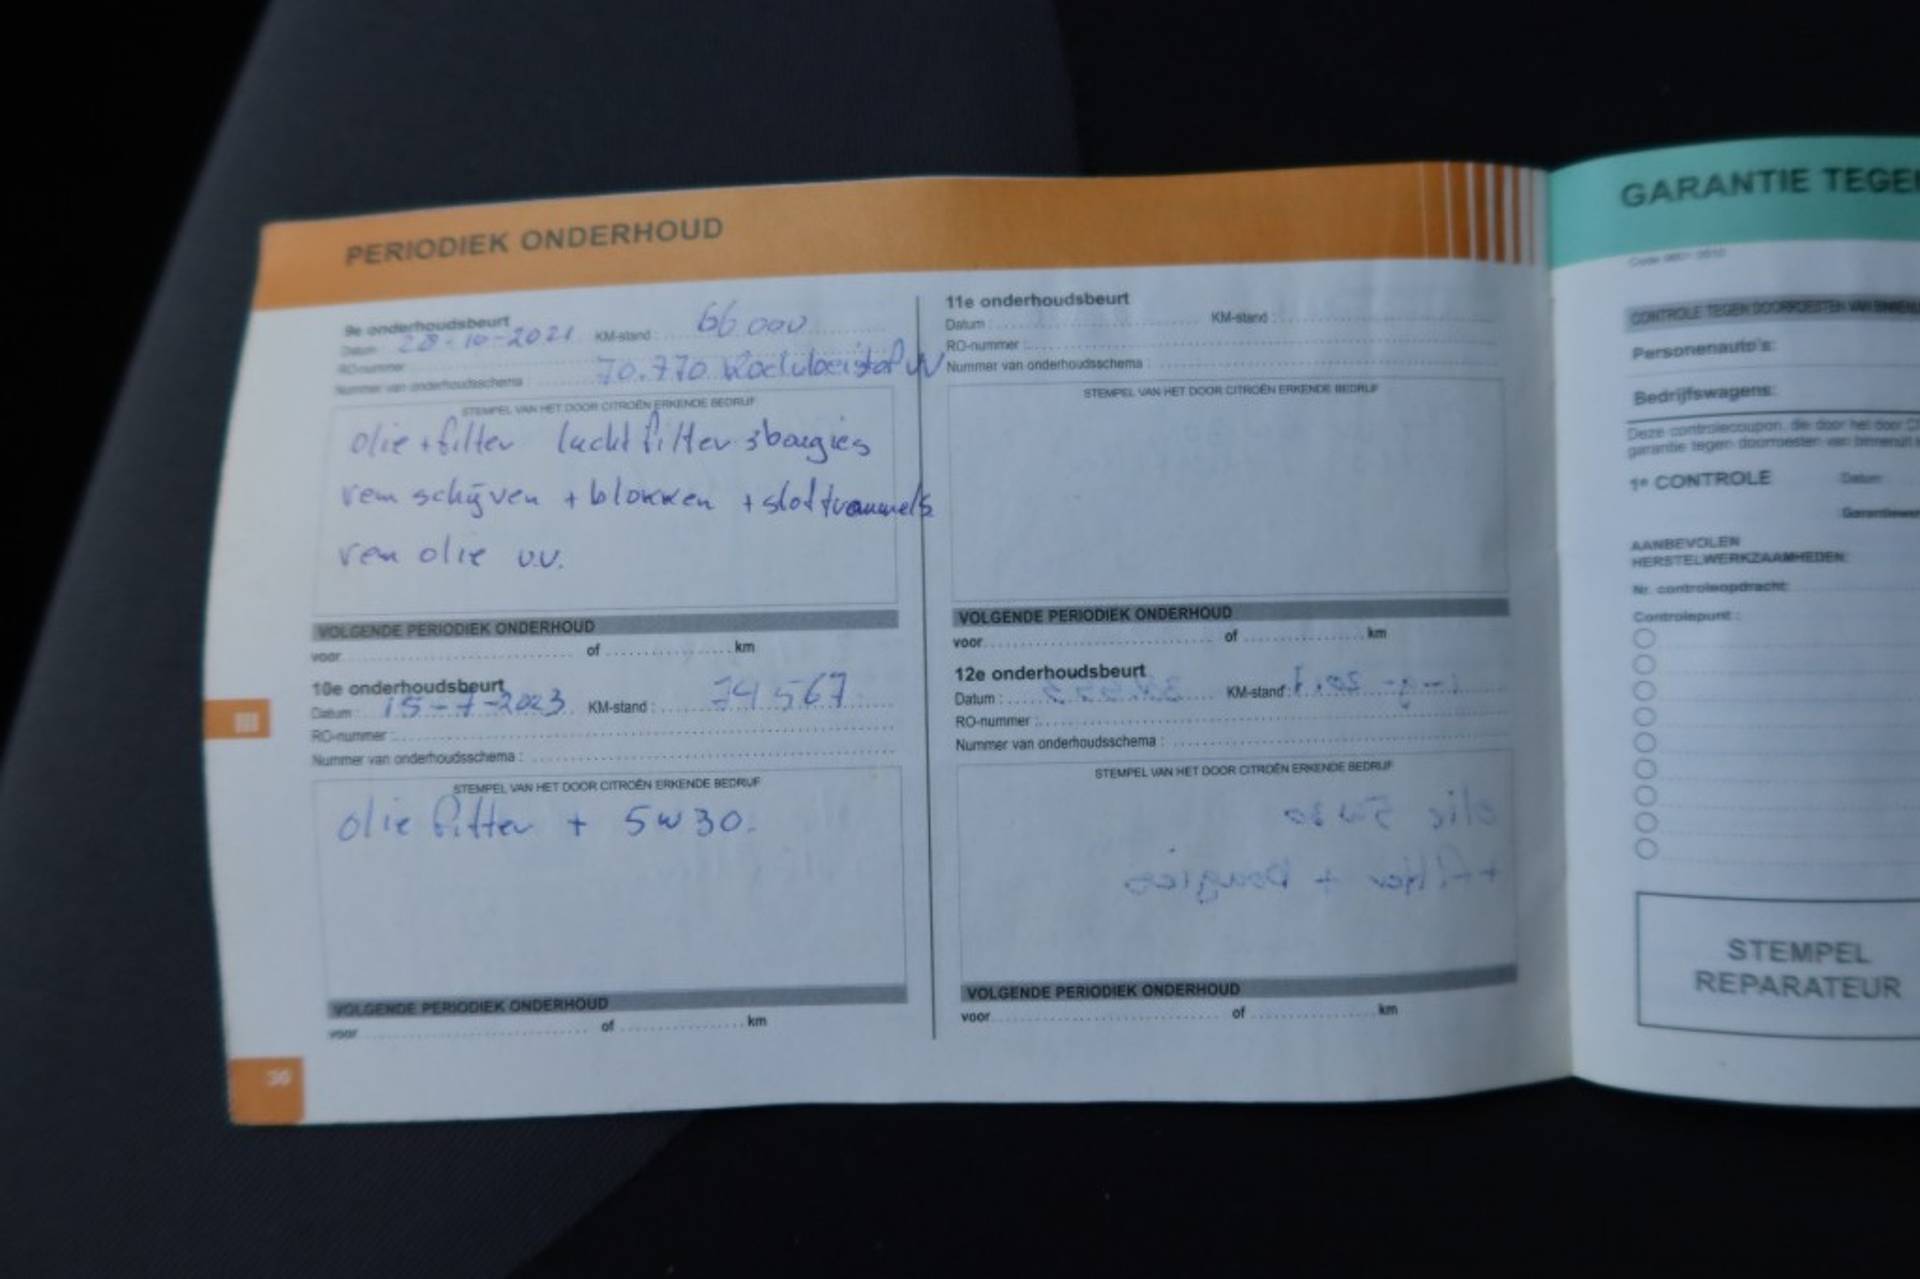 PERIODIEK ONDERHOUD
9e onderhoudsbeurt
Datum : 28-10-2021 KM-stand : 66 000
RO-nummer
Nummer van onderhoudsschema : 70.770 Koelvloeistof VV
STEMPEL VAN HET DOOR CITROËN ERKENDE BEDRIJF
olie + filter lucht filter 3 bougies
rem schijven + blokken + slof trommels
rem olie v.v.
VOLGENDE PERIODIEK ONDERHOUD
voor of km
10e onderhoudsbeurt
Datum : 15-7-2023 KM-stand : 74 567
RO-nummer :
Nummer van onderhoudsschema :
STEMPEL VAN HET DOOR CITROËN ERKENDE BEDRIJF
olie filter + 5w30.
VOLGENDE PERIODIEK ONDERHOUD
voor of km
30
11e onderhoudsbeurt
Datum : KM-stand :
RO-nummer :
Nummer van onderhoudsschema :
STEMPEL VAN HET DOOR CITROËN ERKENDE BEDRIJF
VOLGENDE PERIODIEK ONDERHOUD
voor of km
12e onderhoudsbeurt
Datum : KM-stand :
RO-nummer :
Nummer van onderhoudsschema :
STEMPEL VAN HET DOOR CITROËN ERKENDE BEDRIJF
olie 5w30
+ filter + bougies
VOLGENDE PERIODIEK ONDERHOUD
voor of km
GARANTIE TEGE
CONTROLE TEGEN DOORROESTEN VAN
Personenauto's:
Bedrijfswagens:
Deze controlecoupon, die door het door
garantie tegen doorroesten van binnenuit
1e CONTROLE Datum
Garantie
AANBEVOLEN
HERSTELWERKZAAMHEDEN:
Nr. controleopdracht:
Controlepunt :
STEMPEL
REPARATEUR